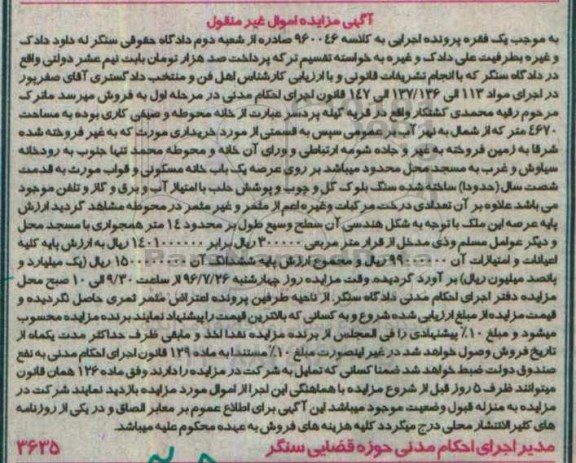 آگهی مزایده اموال غیر منقول
به موجب یک فقره پرونده اجرایی به کلاسه ۹۶۰۰۴۶ صادره از شعبه دوم دادگاه حقوقی سنگر له داود دادک
و غیره بطرفیت علی دادک و غیره به خواسته تقسیم ترکه پرداخت صد هزار تومان بابت نیم عشر دولتی واقع
در دادگاه سنگر که با انجام تشریفات قانونی و با ارزیابی کارشناس اهل فن و منتخب دادگستری آقای صفرپور
در اجرای مواد ۱۱۳ الی ۱۳۷/۱۳۶ الی ۱۴۷ قانون اجرای احکام مدنی در مرحله اول به فروش میرسد ماترک
مرحوم رقیه محمدی کشتکار واقع در قریه گیله پردسر عبارت از خانه محوطه و صیفی کاری بوده به مساحت
۴۶۷۰ متر که از شمال به نهر آب بر عمومی سپس به قسمتی از مورد خریداری مورث که به غیر فروخته شده
شرقا به زمین فروخته به غیر و جاده شوسه ارتباطی و ورای آن خانه و محوطه محمد تنها جنوب به رودخانه
سیاوش و غرب به مسجد محل محدود میباشد بر روی عرصه یک باب خانه مسکونی و قواب مورث به قدمت
شصت سال (حدودا) ساخته شده سنگ بلوک گل و چوب و پوشش حلب با امتیاز آب و برق و گاز و تلفن موجود
می باشد علاوه بر آن تعدادی درخت مرکبات و غیره اعم از مثمر و غیر مثمر در محوطه مشاهد گردید ارزش
پایه عرصه این ملک با توجه به شکل هندسی آن سطح وسیع طول بر محدود ۱۴ متر همجواری با مسجد محل
و دیگر عوامل مسلم وذی مدخل از قرار متر مربعی ۳۰۰۰۰۰ ریال برابر ۱۴۰۱۰۰۰۰۰۰ ریال به ارزش پایه کلیه
اعیانات و امتیازات آن ۹۹۰۰۰۰۰۰ ریال و مجموع ارزش پایه ششدانگ آن ۱۵۰۰۰۰۰۰۰۰ ریال (یک میلیارد و
پانصد میلیون ریال) بر آورد گردیده. وقت مزایده روز چهارشنبه ۹۶/۷/۲۶ از ساعت ۹/۳۰ الی ۱۰ صبح محل
مزایده دفتر اجرای احکام مدنی دادگاه سنگر. از ناحیه طرفین پرونده اعتراض مثمر ثمری حاصل نگردیده و
قیمت مزایده از مبلغ ارزیابی شده شروع و به کسانی که بالاترین قیمت را پیشنهاد نمایند برنده مزایده محسوب
میشود و مبلغ ۱۰٪ پیشنهادی را فی المجلس از برنده مزایده نقدا اخذ و مابقی ظرف حداکثر مدت یکماه از
تاریخ فروش وصول خواهد شد در غیر اینصورت مبلغ ۱۰٪ مستندا به ماده ۱۲۹ قانون اجرای احکام مدنی به نفع
صندوق دولت ضبط خواهد شد ضمنا کسانی که تمایل به شرکت در مزایده را دارند وفق ماده ۱۲۶ همان قانون
میتوانند ظرف ۵ روز قبل از شروع مزایده با هماهنگی این اجرا از اموال مورد مزایده بازدید نمایند شرکت در
مزایده به منزله قبول وضعیت موجود میباشد این آگهی برای اطلاع عموم بر معابر الصاق و در یکی از روزنامه
های کثیرالانتشار محلی درج میگردد کلیه هزینه های فروش به عهده محکوم علیه میباشد.
مدیر اجرای احکام مدنی حوزه قضایی سنگر ۳۶۳۵